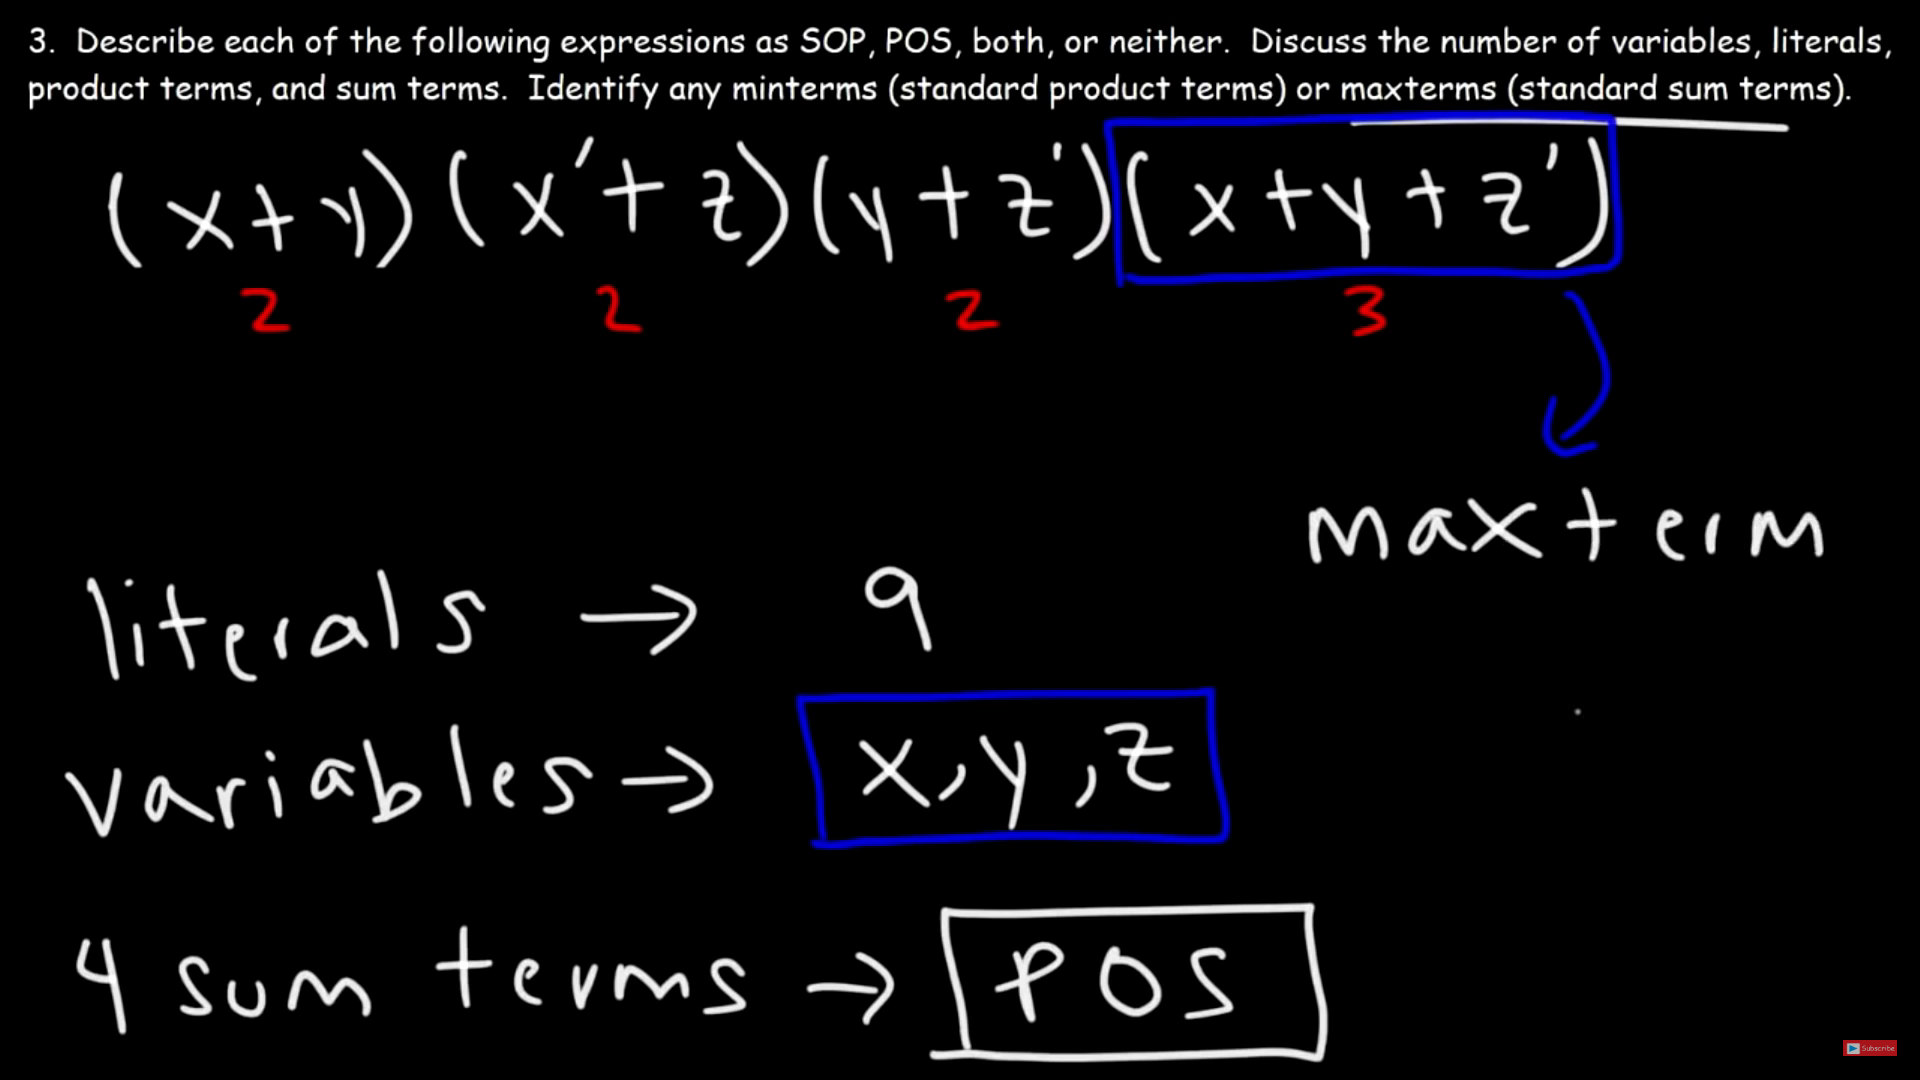 3. Describe each of the following expressions as SOP, POS, both, or neither. Discuss the number of variables, literals,
product terms, and sum terms. Identify any minterms (standard product terms) or maxterms (standard sum terms).
(x+y)(x'+z)(y+z')(x+y+z')
2 2 2 3
maxterm
literals → 9
variables → x,y,z
4 sum terms → POS
Subscribe